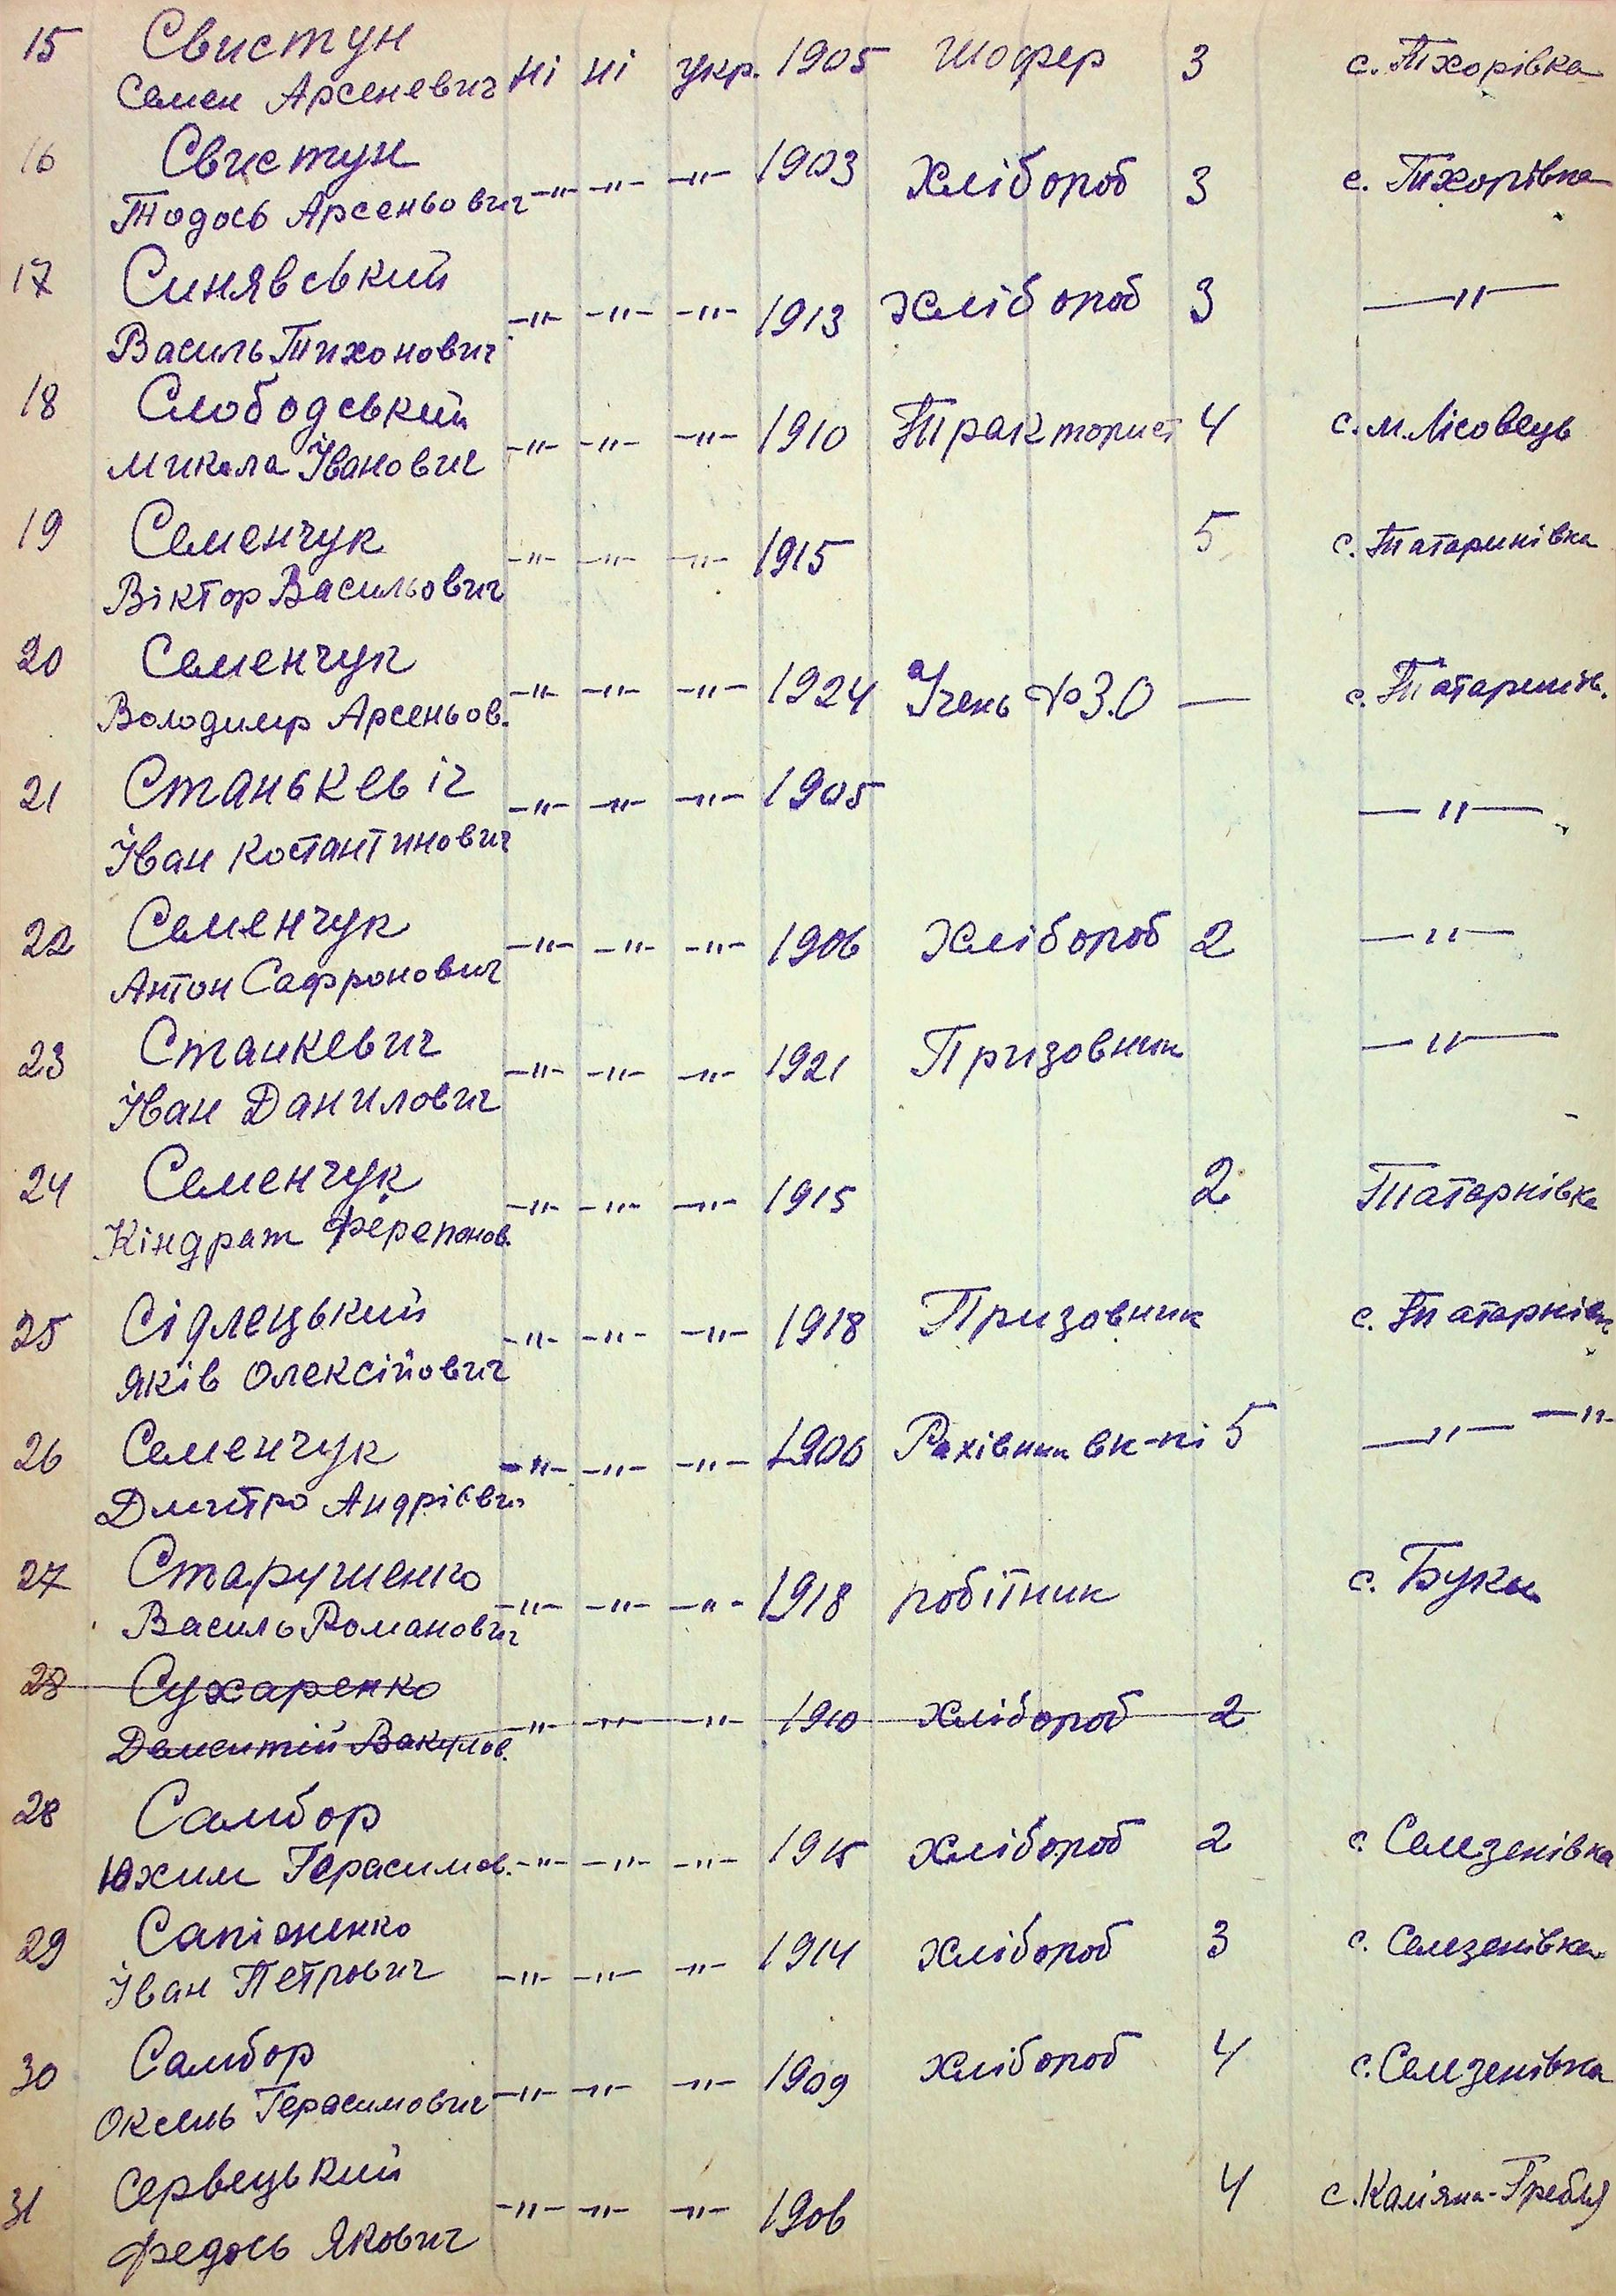 15 Свистун
Семен Арсеневич ні ні укр. 1905 шофер 3 с. Тхорівка
16 Свистун
Тодось Арсеньович -"- -"- -"- 1903 Хлібороб 3 с. Тхорівка
17 Синявський
Василь Тихонович -"- -"- -"- 1913 Хлібороб 3 -"-
18 Слободський
Микола Іванович -"- -"- -"- 1910 Тракторист 4 с. М. Лісовець
19 Семенчук
Віктор Васильович -"- -"- -"- 1915 5 с. Татаринівка
20 Семенчук
Володимир Арсеньов. -"- -"- -"- 1924 Учень ФЗО — с. Татаринів.
21 Станькевіч
Іван Костантинович -"- -"- -"- 1905 -"-
22 Семенчук
Антон Сафронович -"- -"- -"- 1906 Хлібороб 2 -"-
23 Станкевич
Іван Данилович -"- -"- -"- 1921 Призовник -"-
24 Семенчук
Кіндрат Ферепонов. -"- -"- -"- 1915 2 Татарнівка
25 Сідлецький
Яків Олексійович -"- -"- -"- 1918 Призовник с. Татарнівк
26 Семенчук
Дмитро Андрієвич -"- -"- -"- 1906 Рахівник вк-пі 5 -"- -"-
27 Старушенко
Василь Романович -"- -"- -"- 1918 робітник с. Буки
28 Сухаренко
Дементій Вакулов. -"- -"- -"- 1910 Хлібороб 2
28 Самбор
Юхим Герасимов. -"- -"- -"- 1915 Хлібороб 2 с. Селезенівка
29 Сапіженко
Іван Петрович -"- -"- -"- 1914 Хлібороб 3 с. Селезенівка
30 Самбор
Оксень Герасимович -"- -"- -"- 1909 Хлібороб 4 с. Селезенівка
31 Сервецький
Федось Якович -"- -"- -"- 1906 4 с. Кам'яна-Гребля